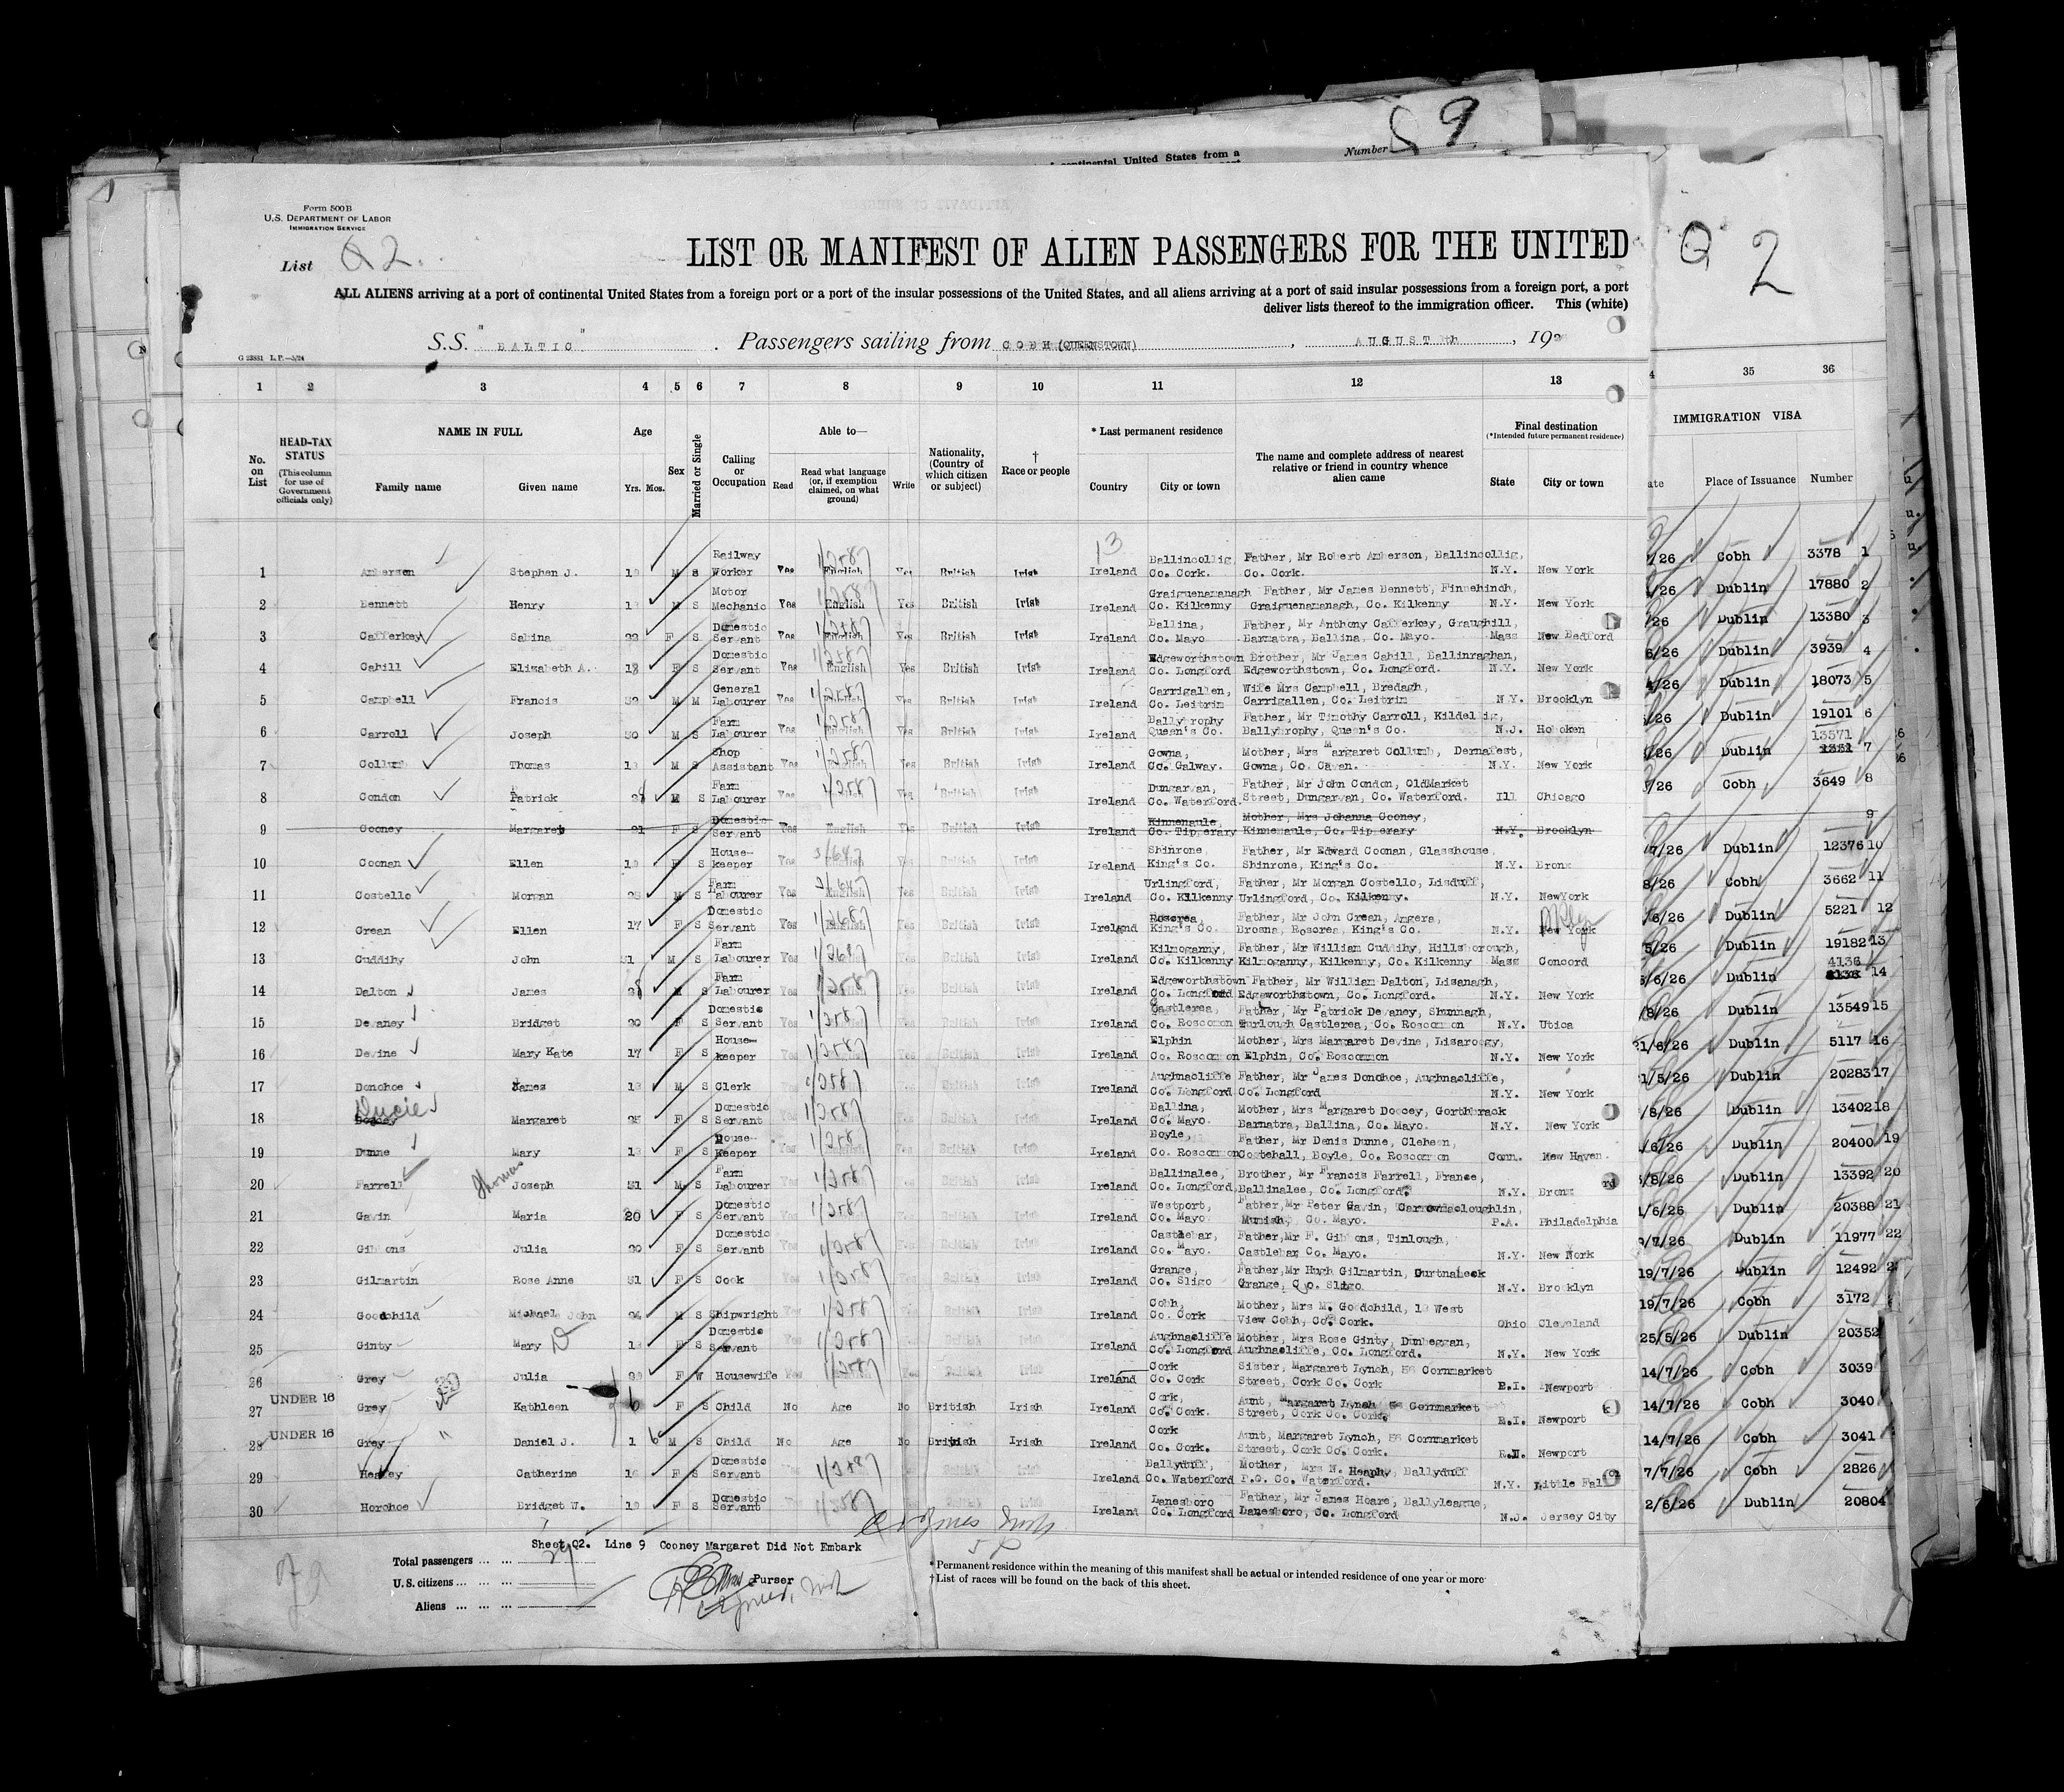 continental United States from a
Number 9
Form 500B
U.S. DEPARTMENT OF LABOR
IMMIGRATION SERVICE
List Q2.
LIST OR MANIFEST OF ALIEN PASSENGERS FOR THE UNITED
Q 2
ALL ALIENS arriving at a port of continental United States from a foreign port or a port of the insular possessions of the United States, and all aliens arriving at a port of said insular possessions from a foreign port, a port
deliver lists thereof to the immigration officer. This (white)
S.S. "BALTIC". Passengers sailing from COBH (QUEENSTOWN), AUGUST, 19
G 23881 L.P.—5/24
1 2 3 4 5 6 7 8 9 10 11 12 13 35 36
No. on List
HEAD-TAX STATUS (This column for use of Government officials only)
NAME IN FULL Family name Given name
Age Yrs. Mos.
Sex
Married or Single
Calling or Occupation
Able to— Read Read what language (or, if exemption claimed, on what ground) Write
Nationality, (Country of which citizen or subject)
† Race or people
* Last permanent residence Country City or town
The name and complete address of nearest relative or friend in country whence alien came
Final destination (*Intended future permanent residence) State City or town
IMMIGRATION VISA
Place of Issuance Number
1 Stephen J. M S Railway Worker Yes English Yes British Irish Ireland Ballincollig Co. Cork. Father, Mr Robert Amberson, Ballincollig, Co. Cork. N.Y. New York /26 Cobh 3378 1
2 Bennett Henry M S Motor Mechanic Yes English Yes British Irish Ireland Graiguenamanagh Co. Kilkenny Father, Mr James Bennett, Finnehinch, Graiguenamanagh, Co. Kilkenny N.Y. New York /26 Dublin 17880 2
3 Cafferkey Sabina F S Domestic Servant Yes English Yes British Irish Ireland Ballina, Co. Mayo Father, Mr Anthony Cafferkey, Graughill, Barnatra, Ballina, Co. Mayo. Mass New Bedford /26 Dublin 13380 3
4 Cahill Elizabeth A. 18 F S Domestic Servant Yes English Yes British Irish Ireland Edgeworthstown Co. Longford Brother, Mr James Cahill, Ballinraghan, Edgeworthstown, Co. Longford. N.Y. New York 6/26 Dublin 3939 4
5 Campbell Francis M M General Labourer Yes English Yes British Irish Ireland Carrigallen, Co. Leitrim Wife Mrs Campbell, Bredagh, Carrigallen, Co. Leitrim N.Y. Brooklyn 4/26 Dublin 18073 5
6 Carroll Joseph M S Farm Labourer Yes English Yes British Irish Ireland Ballybrophy Queen's Co. Father, Mr Timothy Carroll, Kildellig, Ballybrophy, Queen's Co. N.J. Hoboken /26 Dublin 19101 6
7 Collumb Thomas M S Shop Assistant Yes English Yes British Irish Ireland Gowna, Co. Galway. Mother, Mrs Margaret Collumb, Dernafest, Gowna, Co. Cavan. N.Y. New York /26 Dublin 13571 7
8 Condon Patrick 28 M S Farm Labourer Yes English Yes British Irish Ireland Dungarvan, Co. Waterford. Father, Mr John Condon, OldMarket Street, Dungarvan, Co. Waterford. Ill Chicago /26 Cobh 3649 8
9 Cooney Margaret 21 F S Domestic Servant Yes English Yes British Irish Ireland Kinnenaule, Co. Tipperary Mother, Mrs Johanna Cooney, Kinnenaule, Co. Tipperary N.Y. Brooklyn 9
10 Coonan Ellen F S House-keeper Yes English Yes British Irish Ireland Shinrone, King's Co. Father, Mr Edward Coonan, Glasshouse, Shinrone, King's Co. N.Y. Bronx 7/26 Dublin 12376 10
11 Costello Morgan 25 M S Farm Labourer Yes English Yes British Irish Ireland Urlingford, Co. Kilkenny Father, Mr Morgan Costello, Lisduff, Urlingford, Co. Kilkenny. N.Y. NewYork 8/26 Cobh 3662 11
12 Crean Ellen 17 F S Domestic Servant Yes English Yes British Irish Ireland Roscrea, King's Co. Father, Mr John Crean, Angera, Brosna, Roscrea, King's Co. N.Y. New York Bklyn /6/26 Dublin 5221 12
13 Cuddihy John M S Farm Labourer Yes English Yes British Irish Ireland Kilmoganny, Co. Kilkenny Father, Mr William Cuddihy, Hillsborough, Kilmoganny, Kilkenny, Co. Kilkenny Mass Concord /5/26 Dublin 19182 13
14 Dalton James 28 M S Farm Labourer Yes English Yes British Irish Ireland Edgeworthstown Co. Longford Father, Mr William Dalton, Lisanagh, Edgeworthstown, Co. Longford. N.Y. New York /6/26 Dublin 4136 14
15 Devaney Bridget 20 F S Domestic Servant Yes English Yes British Irish Ireland Castlerea, Co. Roscommon Father, Mr Patrick Devaney, Shunnagh, Turlough Castlerea, Co. Roscommon N.Y. Utica /8/26 Dublin 13549 15
16 Devine Mary Kate 17 F S House-keeper Yes English Yes British Irish Ireland Elphin Co. Roscommon Mother, Mrs Margaret Devine, Lisaroogy, Elphin, Co. Roscommon N.Y. New York 21/6/26 Dublin 5117 16
17 Donohoe James M S Clerk Yes English Yes British Irish Ireland Aughnacliffe Co. Longford Father, Mr James Donohoe, Aughnacliffe, Co. Longford N.Y. New York 1/5/26 Dublin 20283 17
18 Ducie Margaret 25 F S Domestic Servant Yes English Yes British Irish Ireland Ballina, Co. Mayo. Mother, Mrs Margaret Doocey, Gorthbrack Barnatra, Ballina, Co. Mayo. N.Y. New York /8/26 Dublin 13402 18
19 Dunne Mary F S House-Keeper Yes English Yes British Irish Ireland Boyle, Co. Roscommon Father, Mr Denis Dunne, Cleheen, Cootehall, Boyle, Co. Roscommon Conn. New Haven. /6/26 Dublin 20400 19
20 Farrell Thomas Joseph M S Farm Labourer Yes English Yes British Irish Ireland Ballinalee, Co. Longford. Brother, Mr Francis Farrell, France, Ballinalee, Co. Longford. N.Y. Bronx /8/26 Dublin 13392 20
21 Gavin Maria 20 F S Domestic Servant Yes English Yes British Irish Ireland Westport, Co. Mayo Father, Mr Peter Gavin, Carrowmacloughlin, Munish, Co. Mayo. P.A. Philadelphia /6/26 Dublin 20388 21
22 Gibbons Julia 20 F S Domestic Servant Yes English Yes British Irish Ireland Castlebar, Co. Mayo. Father, Mr F. Gibbons, Tinlough, Castlebar Co. Mayo. N.Y. New Nork /7/26 Dublin 11977 22
23 Gilmartin Rose Anne F S Cook Yes English Yes British Irish Ireland Grange, Co. Sligo Father, Mr Hugh Gilmartin, Grange, Co. Sligo. N.Y. Brooklyn 19/7/26 Dublin 12492
24 Goodchild Michael John M S Shipwright Yes English Yes British Irish Ireland Cobh, Co. Cork Mother, Mrs M. Goodchild, West View Cobh, Co. Cork. Ohio Cleveland 19/7/26 Cobh 3172
25 Ginty Mary F S Domestic Servant Yes English Yes British Irish Ireland Aughnacliffe Co. Longford Mother, Mrs Rose Ginty, Dunbeggan, Aughnacliffe, Co. Longford. N.Y. New York 25/5/26 Dublin 20352
26 Grey Julia F W Housewife Yes English Yes British Irish Ireland Cork Co. Cork Sister, Margaret Lynch, Cornmarket Street, Cork Co. Cork R.I. Newport 14/7/26 Cobh 3039
UNDER 16 27 Grey Kathleen 6 F S Child No Age No British Irish Ireland Cork, Co. Cork. Aunt, Margaret Lynch Cornmarket Street, Cork Co. Cork. R.I. Newport 14/7/26 Cobh 3040
UNDER 16 28 Grey Daniel J. 1 M S Child No Age No British Irish Ireland Cork Co. Cork. Aunt, Margaret Lynch, Cornmarket Street, Cork Co. Cork. R.I. Newport 14/7/26 Cobh 3041
29 Catherine F S Domestic Servant Yes English Yes British Irish Ireland Ballyduff, Co. Waterford Mother, Mrs N. Heaphy, Ballyduff P.O. Co. Waterford. N.Y. Little Fal 7/7/26 Cobh 2826
30 Horohoe Bridget W. F S Domestic Servant Yes English Yes British Irish Ireland Lanesboro Co. Longford Father, Mr James Hoare, Ballyleague, Lanesboro, Co. Longford N.J. Jersey City 2/6/26 Dublin 20804
Sheet Q2. Line 9 Cooney Margaret Did Not Embark
Total passengers ... ... 29
U.S. citizens ... ... ...
Aliens ... ... ...
Purser
* Permanent residence within the meaning of this manifest shall be actual or intended residence of one year or more
† List of races will be found on the back of this sheet.